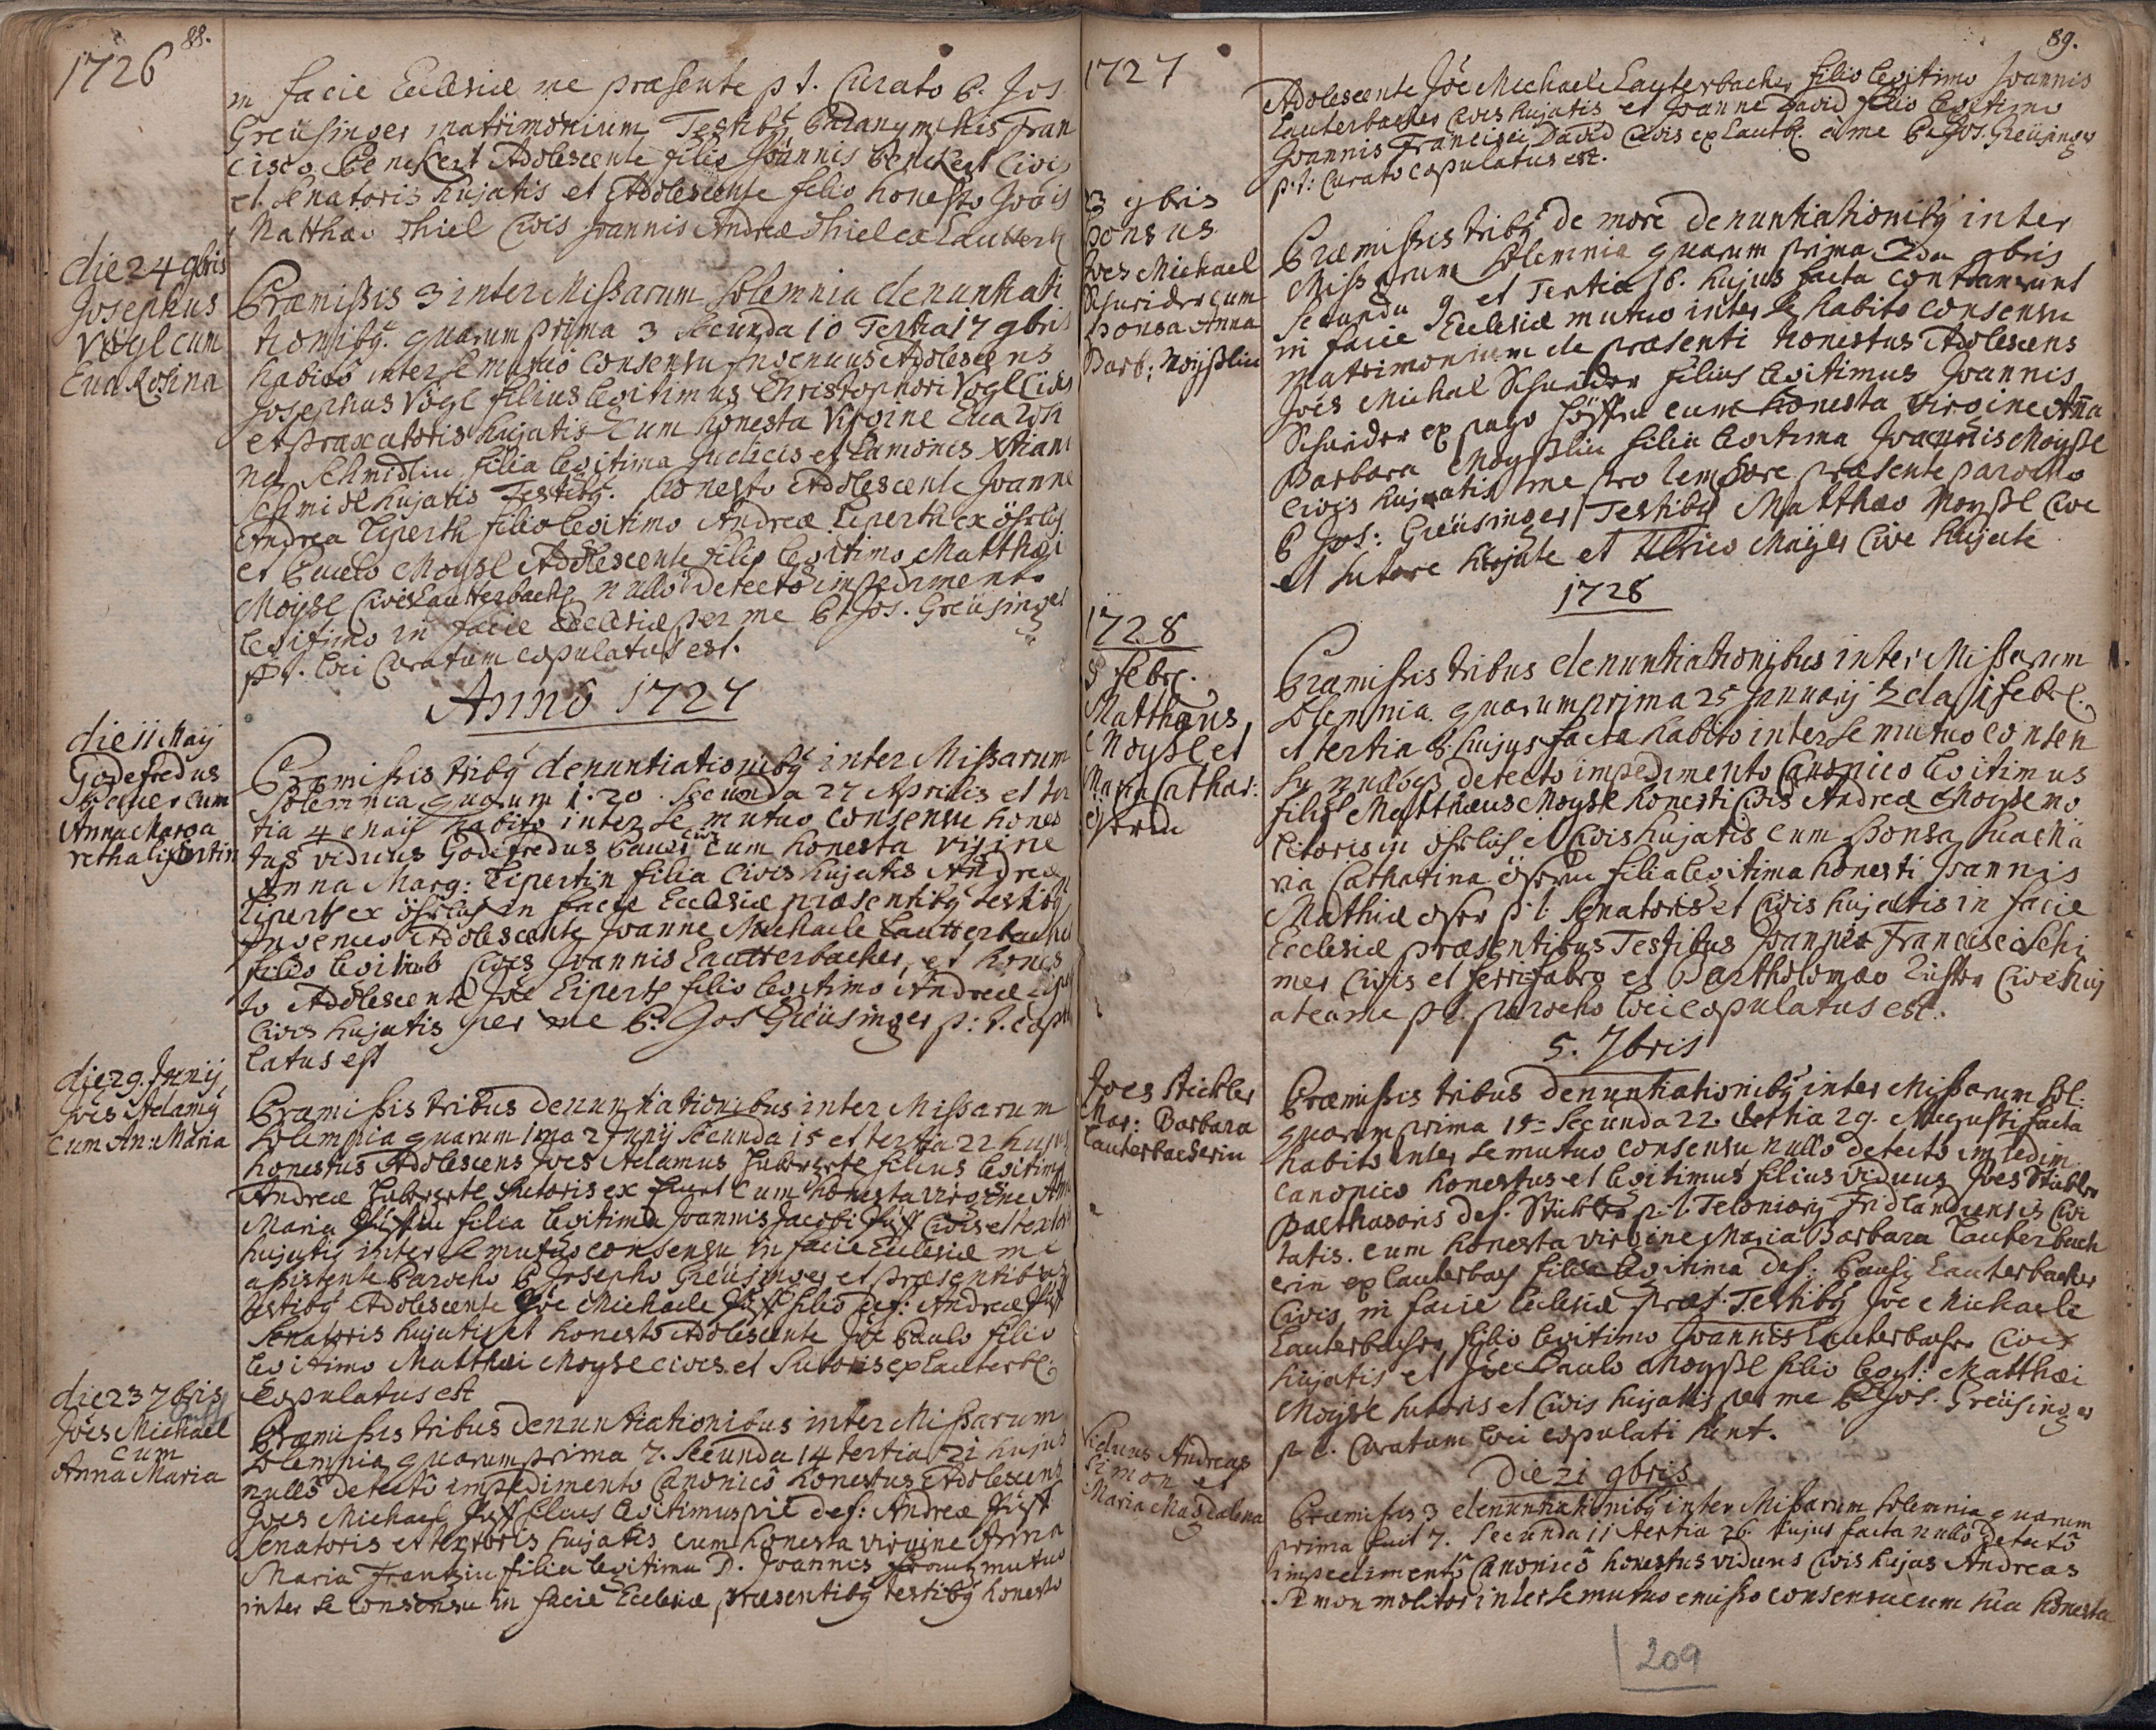 88.
1726
in facie Ecclesiæ me præsente p. t. Curato P. Jos.
Greüsinger matrimonium Testibȝ Paranymphis Fran
cisco Benckert Adolescente filio Joannis Benckert Civis
et Senatoris hujatis et Adolescente filio honesto Joois
Matthæo Thiel Civis Joannis Andreæ Thiel ex Lautterb
die 24 9bris
Josephus
Vögl cum
Eva Rosina
Præmissis 3 inter Missarum solemnia denuntiati
tionibȝ quarum prima 3 secunda 10 Tertia 17 9bris
habito inter se mutuo consensu Ingenuus Adolescens
Josephus Vögl filius legitimus Christophori Vögl Civis
et praxatoris hujatis Cum honesta Virgine Eva Rosi
na Schmidlin filia legitima Judicis et Lamonis Xtiani
Schmidl hujatis Testibȝ. honesto Adolescente Joanne
Andrea Liperth filio legitimo Andreæ Liperth ex öhrlich
et Paulo Moysl Adolescente filio legitimo Matthæi
Moysl Civis Lautterbach nullo detecto impedimento
legitimo in facie Ecclesiæ per me P. Jos. Greüsinger
p. t. loci Curatum copulatus est.
Anno 1727
die 11 Maij
Godefredus
Bauer cum
Anna Marga
retha lipertin
Præmissis tribȝ denuntiationibȝ inter Missarum
solemnia quarum 1. 20. secunda 27 Aprilis et ter
tia 4 Maij habito inter se mutuo consensu hones
tus viduus Godefredus Bauer cum honesta virgine
Anna Marg: Lipertin filia Civis hujatis Andreæ
Liperth ex öhrlich in facie Ecclesiæ præsentibȝ testibȝ
Ingenuo Adolescente Joanne Michaele Lautterbacher
filio legitimo Civis Joannis Lautterbacher, et hones
to Adolescente Joe Liperth filio legitimo Andreæ Lip
Civis hujatis per me P. Jos Greüsinger p: t. copu
latus est
die 29. Junij
Jois Adamȝ
cum An: Maria
Præmissis tribus denuntiationibus inter Missarum
solemnia quarum 1ma 2 Junij secunda 15 et tertia 22 hujus
honestus Adolescens Joes Adamus filius legitimȝ
Andreæ Sutoris ex cum honesta virgine Ana
Maria filia legitima Joannis Jacobi Civis et textoris
hujatis inter se mutuo consensu in facie Ecclesiæ me
assistente Parocho P Josepho Greüsinger et præsentibus
testibȝ Adolescente Joe Michaele filio def: Andreæ
Senatoris hujatis et honesto Adolescente Joe Paulo filio
legitimo Matthæi Moysl civis et Sutoris ex Lauterb:
copulatus est
die 23 7bris
Jois Michael
cum
Anna Maria
Præmissis tribus denuntiationibus inter Missarum
solemnia quarum prima 7. secunda 14 tertia 21 hujus
nullo detecto impedimento Canonico honestus Adolescens
Joes Michael filius legitimus pie def: Andreæ
Senatoris et textoris hujatis cum honesta virgine Anna
Maria Frantzin filia legitima D. Joannis Frantz mutuo
inter se consensu in facie Ecclesiæ præsentibȝ testibȝ honesto
89.
1727
Adolescente Joe Michaele Lauterbacher filio legitimo Joannis
Lauterbacher Civis hujatis et Joanne David filio legitimo
Joannis Francisci David Civis ex Lautb: a me P. Jos. Greüsinger
p. t: Curato copulatus est.
23 9bris
Sponsus
Joes Michael
Schneider cum
Sponsa Anna
Barb: Moyßlin
Præmissis tribȝ de more denuntiationibȝ inter
Missarum solemnia quarum prima 2da 9bris
secunda 9 et Tertia 16. hujus facta contraxerunt
in facie Ecclesiæ mutuo inter se habito consensu
matrimonium de præsenti honestus Adolescens
Jois Michal Schneider filius legitimus Joannis
Schneider ex pago cum honesta virgine Anna
Barbara Moyßlin filia legitima Moyßl
Civis hujatis me pro tempore præsente parocho
P Jos: Greüsinger Testibȝ Matthæo Moyßl Cive
et sutore hujate et Ulrico Mayer Cive hujate
1728
1728
8 febr.
Matthæus
Moyßl et
Maria Cathar:
Præmissis tribus denuntiationibus inter Missarum
solemnia quarum prima 25 Januarij 2da 1 febr.
et tertia 8. hujus facta habito inter se mutuo consen
su nullo detecto impedimento Canonico legitimus
filius Matthæus Moysl honesti Civis Andreæ Moysl mo
litoris in öhrlich et Civis hujatis cum sponsa sua Ma
ria Catharina filia legitima honesti Joannis
Mathiæ p. t. Senatoris et Civis hujatis in facie
Ecclesiæ præsentibus Testibus Joannis Francisci Schi
mer Civis et ferrifabro et Bartholomæo Cive huj
ate a me p. t. parocho loci copulatus est.
5. 7bris
Joes Stickler
Mar: Barbara
Lauterbacherin
Præmissis tribus denuntiationibȝ inter Missarum sol:
quarum prima 15 secunda 22. tertia 29. Augusti facta
habito inter se mutuo consensu nullo detecto impedim.
canonico honestus et legitimus filius viduus Joes Stickler
Balthasaris def. Stickler p. t. Teloniarij Fridlandiensis Civi
tatis. cum honesta virgine Maria Barbara Lauterbach
erin ex Lauterbach filia legitima def. Lauterbacher
Civis in facie Ecclesiæ præs: Testibȝ Joe Michaele
Lauterbacher filio legitimo Joannis Lauterbacher Civis
hujatis et Joe Paulo Moyßl filio legit: Matthæi
Moysl sutoris et Civis hujatis per me P Jos. Greüsinger
p t. Curatum loci copulati sunt.
Die 21 9bris
Viduus Andreas
Simon et
Maria Magdalena
Præmissis 3 denuntiationibȝ inter Missarum solemnia quarum
prima fuit 7. secunda 11 tertia 26 hujus facta nullo detecto
impedimento Canonico honestus viduus Civis hujus Andreas
Simon molitor inter se mutuo emisso consensu cum sua honesta
209